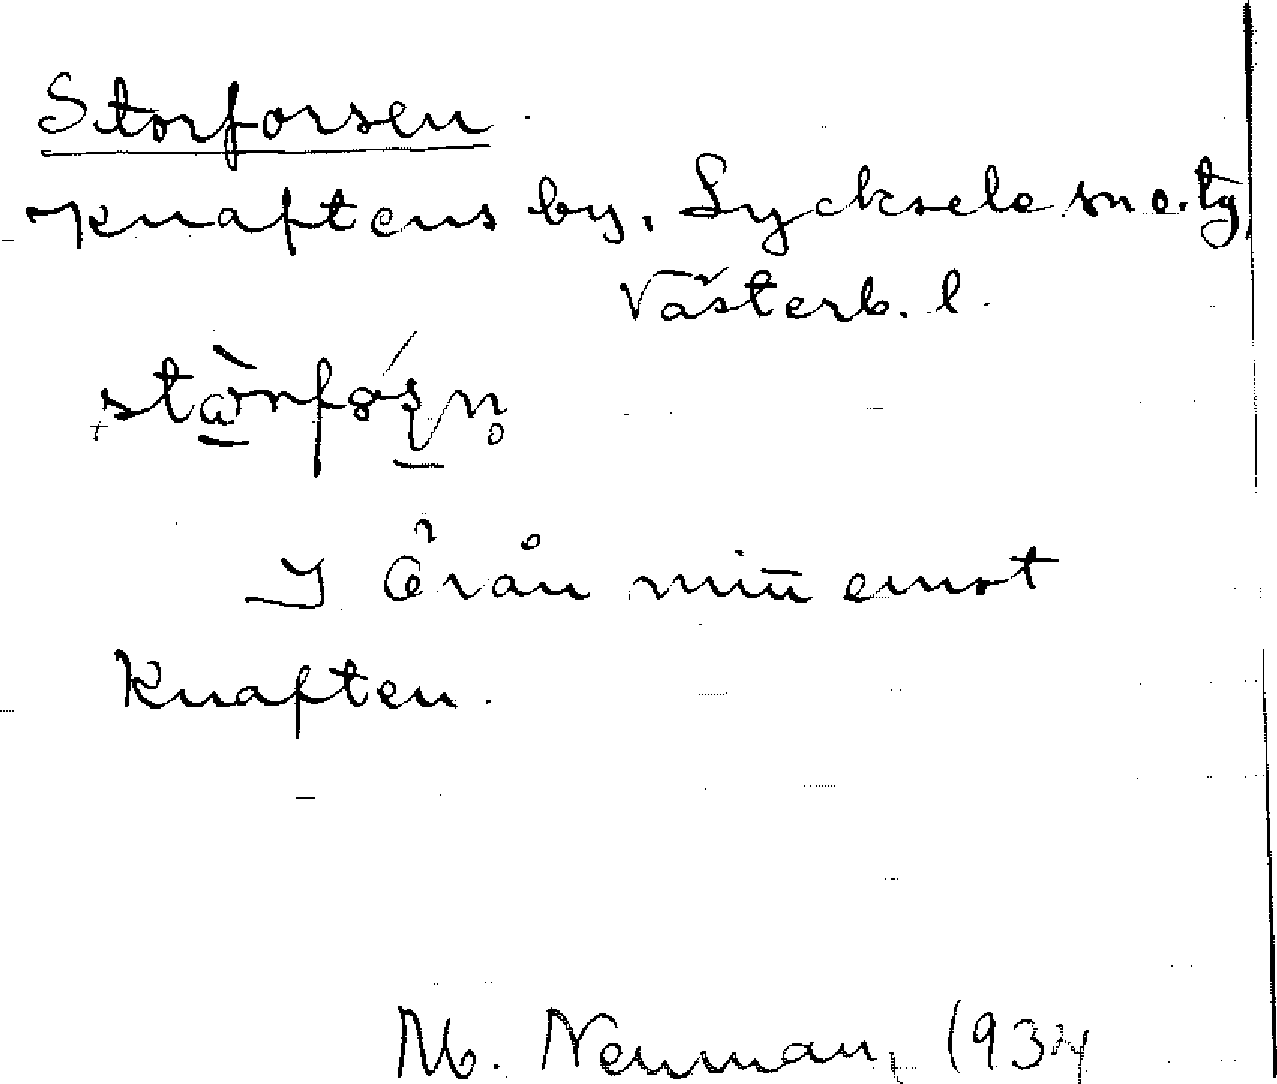 Storforsen.
Knaftens by, Lycksele sn o. tg
Västerb. l.
I Örån mitt emot
Knaften.
M. Neuman, 1934